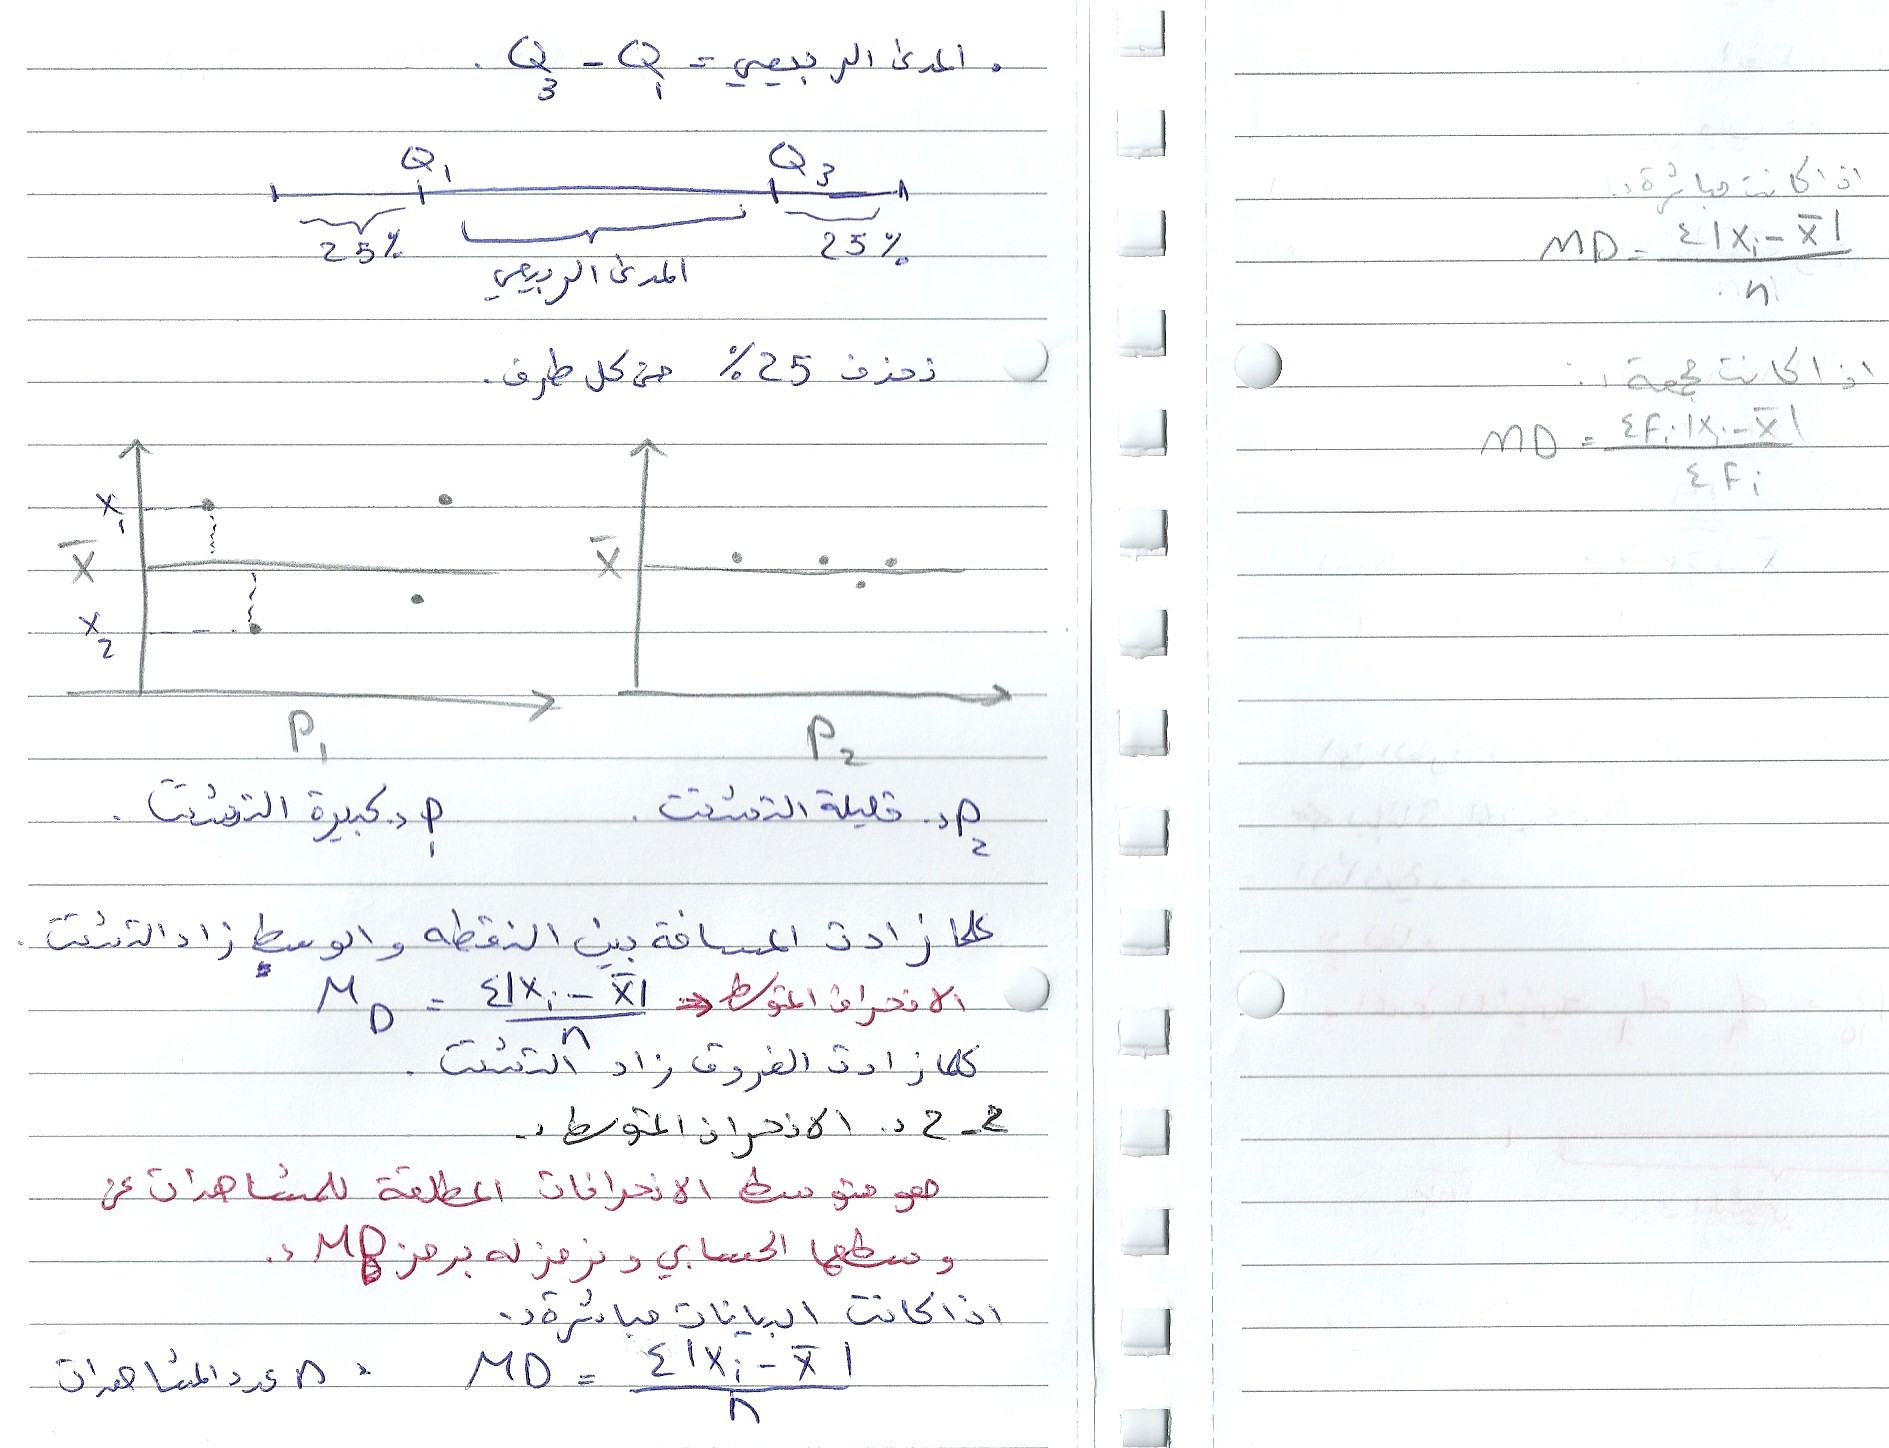 . المدى الربيعي = Q3 - Q1 .
Q1 Q3
25% 25%
المدى الربيعي
نحذف 25% من كل طرف.
x1
x̄ x̄
x2
P1 P2
P1 :. كبيرة التشتت .
P2 :. قليلة التشتت .
كلما زادت المسافة بين النقطه والوسط زاد التشتت .
الانحراف المتوسط => MD = Σ|xi - x̄| / n
كلما زادت الفروق زاد التشتت .
2-2 :. الانحراف المتوسط :.
هو متوسط الانحرافات المطلقة للمشاهدات عن
وسطها الحسابي ونرمز له برمز MD :.
اذا كانت البيانات مباشرة :.
MD = Σ|xi - x̄| / n ، n عدد المشاهدات
اذا كانت مباشرة :.
MD = Σ|xi - x̄| / n
اذا كانت مجمعة :.
MD = ΣFi|xi - x̄| / ΣFi